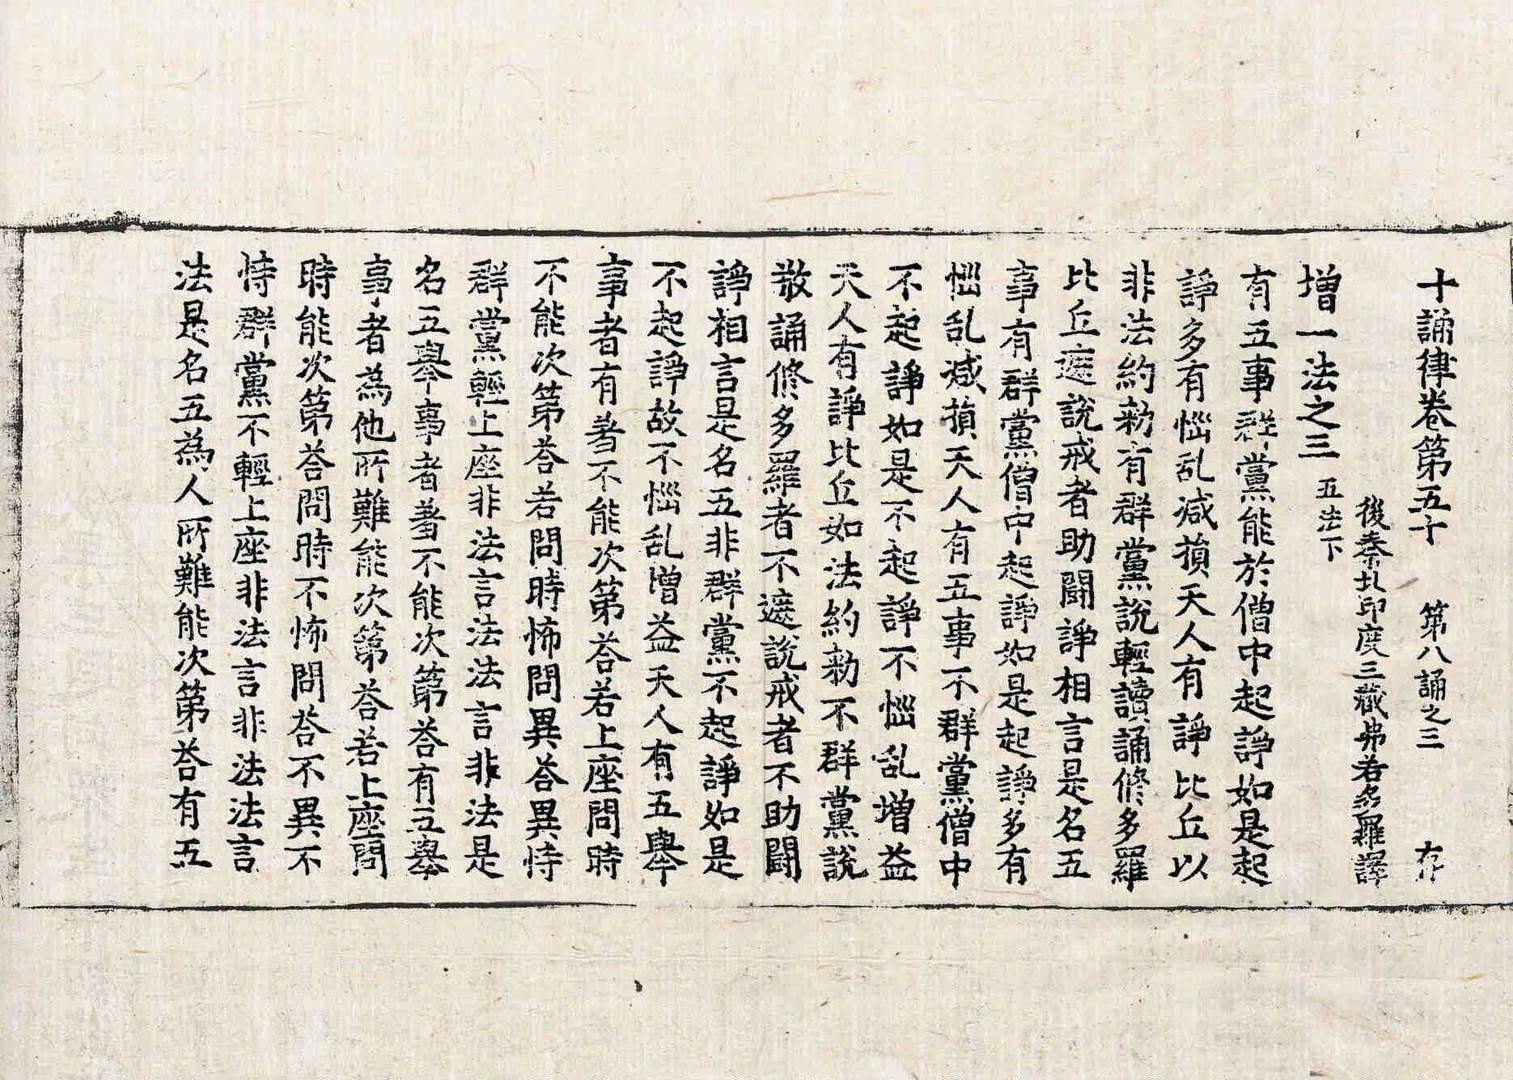 十誦律卷第五十　第八誦之三　存
後秦北印度三藏弗若多羅譯
增一法之三　五法下
有五事群黨能於僧中起諍如是起
諍多有惱乱减損天人有諍比丘以
非法約勑有群黨說輕讀誦修多羅
比丘遮說戒者助鬪諍相言是名五
事有群黨僧中起諍如是起諍多有
惱乱减損天人有五事不群黨僧中
不起諍如是不起諍不惱乱增益
天人有諍比丘如法約勑不群黨說
敬誦修多羅者不遮說戒者不助鬪
諍相言是名五非群黨不起諍如是
不起諍故不惱乱增益天人有五舉
事者有著不能次第荅若上座問時
不能次第荅若問時怖問異荅異恃
群黨輕上座非法言法法言非法是
名五舉事者著不能次第荅有五舉
事者為他所難能次第荅若上座問
時能次第荅問時不怖問荅不異不
恃群黨不輕上座非法言非法法言
法是名五為人所難能次第荅有五